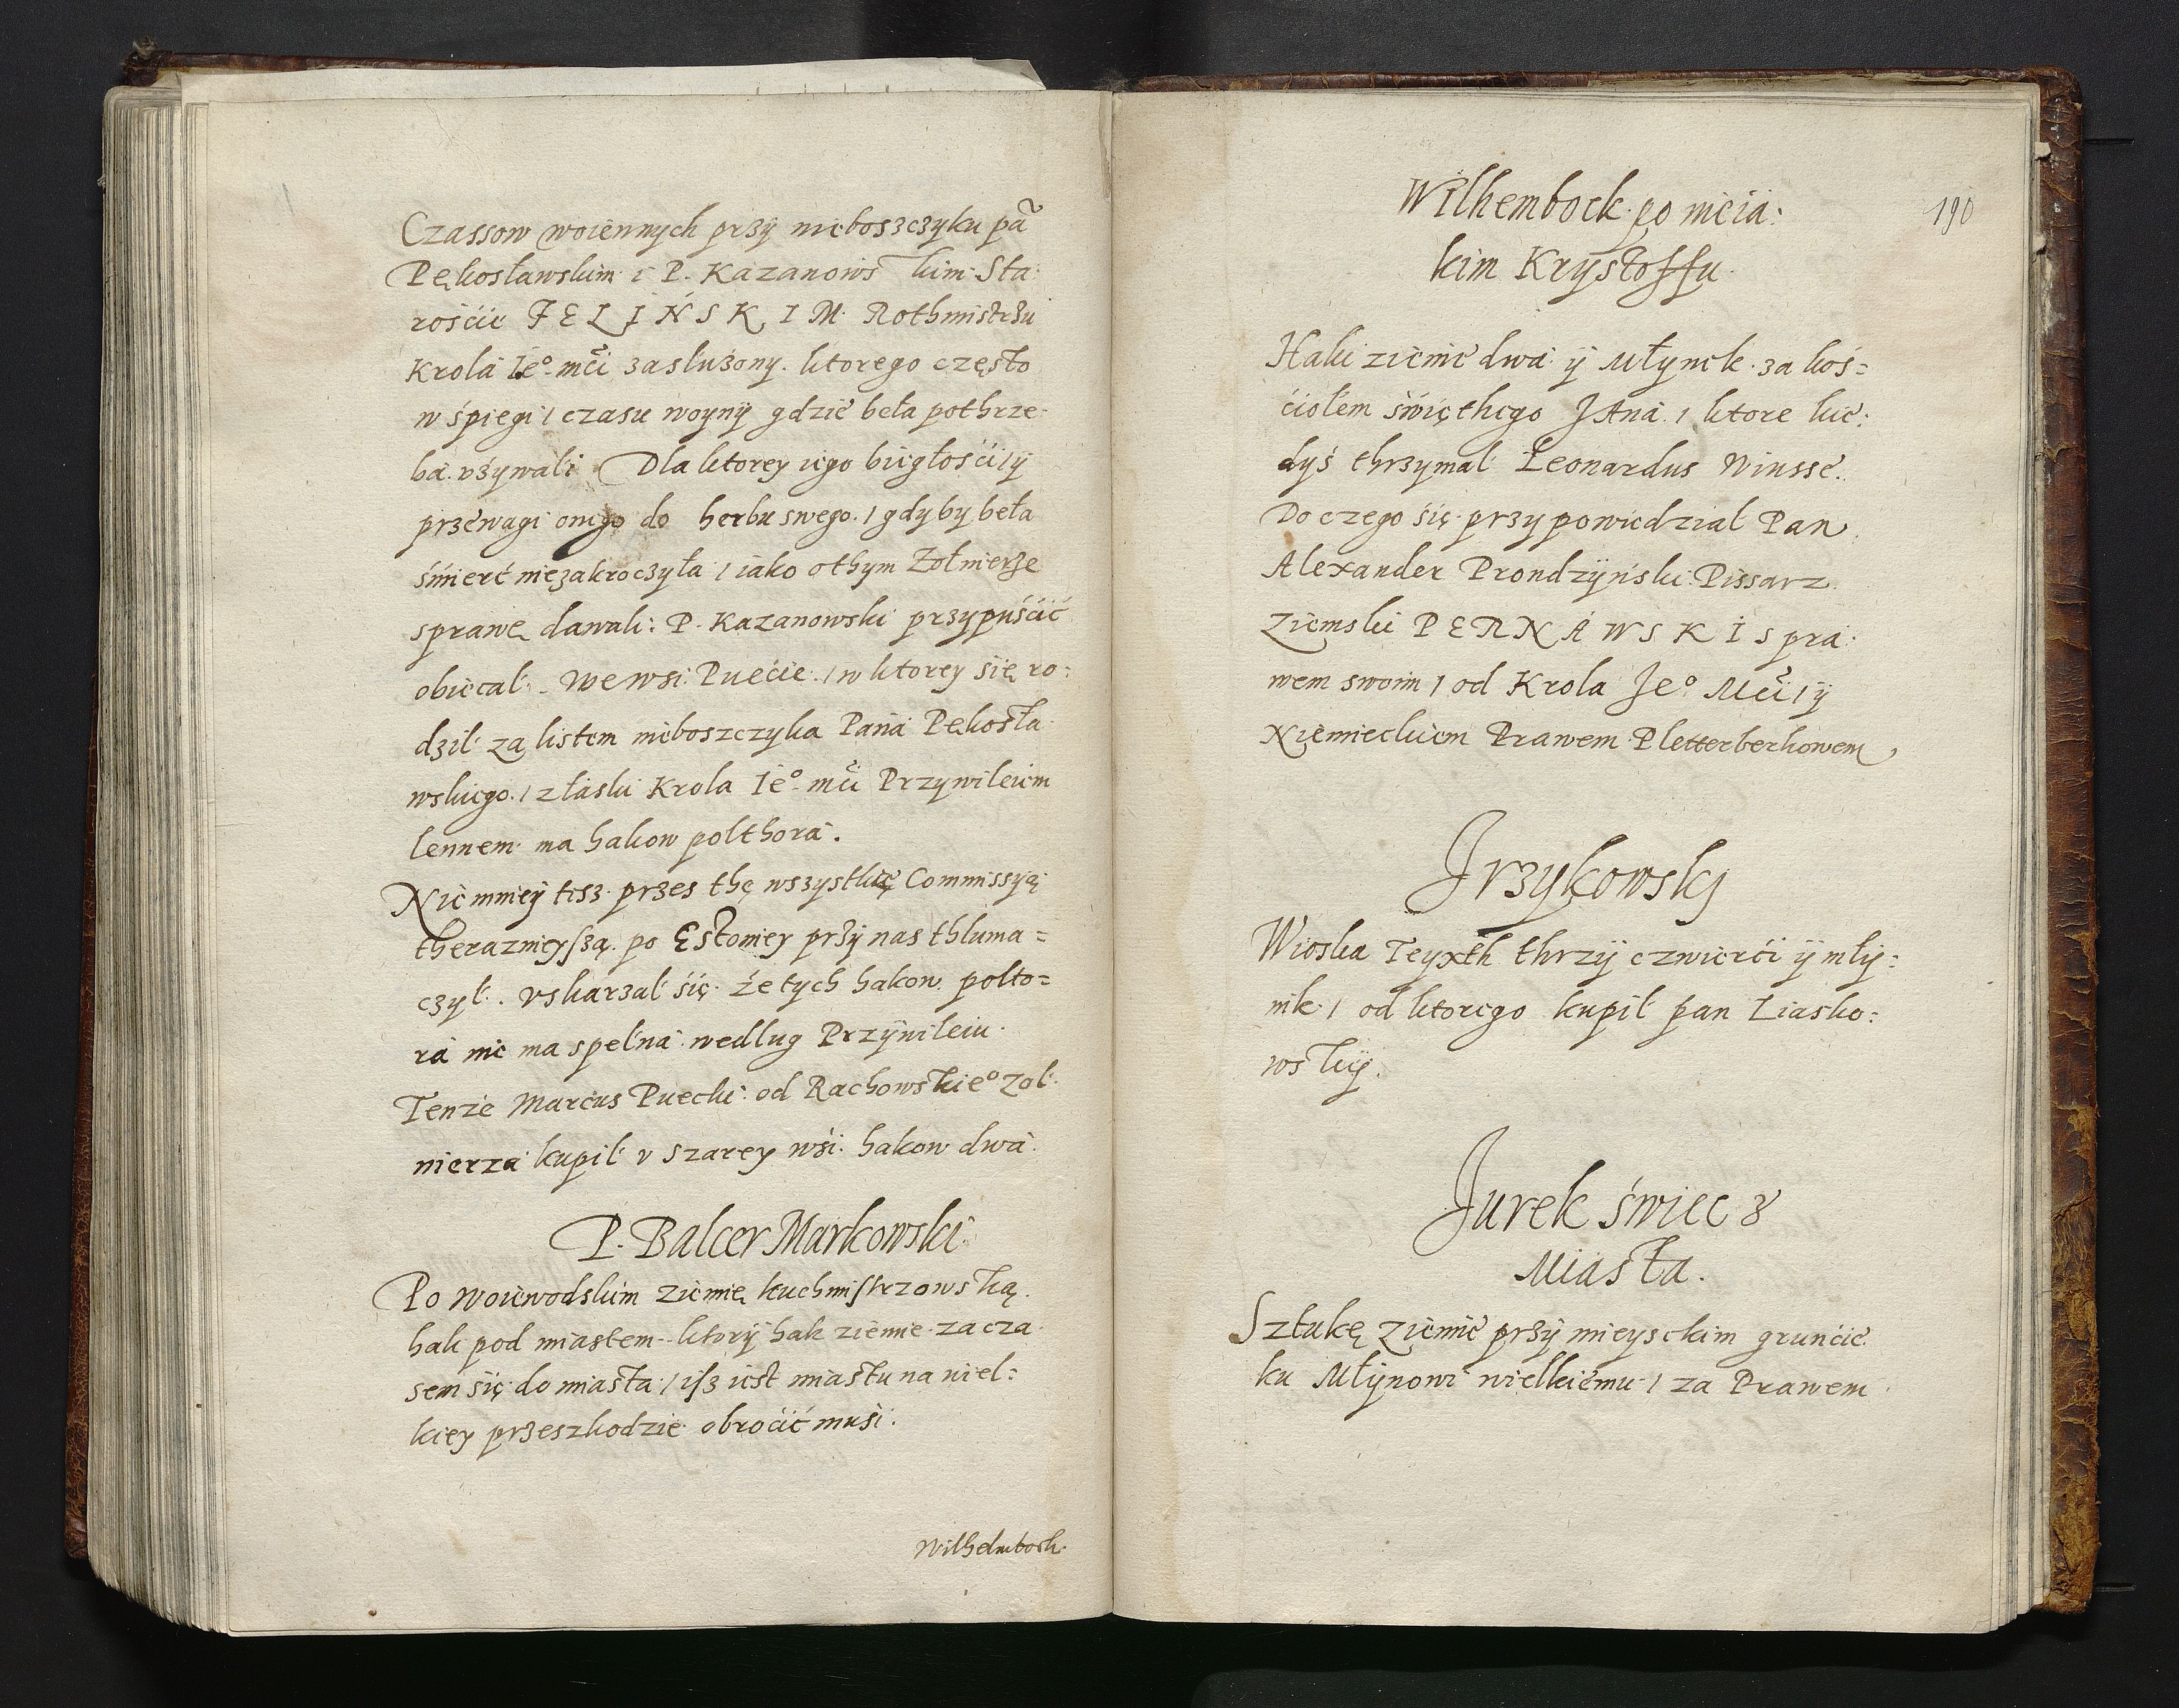 Czassow woiennych przÿ nieboszczyku pã
Pękosławskim i P. Kazanows kim Sta:
rośćie FELIŃSKIM Rothmistrzu
Krola Ie⁰ mći zasłużony. ktorego często
w śpiegi / czasu woynÿ gdzie beła pothrze-
ba vżywali Dla ktorey iego biegłośći / ÿ
przewagi onego do herbu swego. / gdyby beła
śmierć niezakroczyła / iako othym Żołnierze
sprawę dawali: P. Kazanowski przypuśćić
obiecał. We wsi Puećie. / w ktorey się ro:
dził za listem nieboszczyka Pana Pękosła
wskiego. / z łaski Krola Ie⁰ mći Przywileiem
lennem ma hakow polthora.
Nie mniey tesz przes thę wszystkę Commissyą
theraznieyszą po Estoniey przÿ nas thluma=
czył. vskarzał się że tych hakow polto=
ra nie ma spełna wedlug Przÿwileiu.
Tenże Marcus Puecki od Rachowskie⁰ Żoł
nierza kupił v szarey wśi hakow dwa.
P. Balcer Markowski
Po Woiewodskim ziemię kuchmistrzowską.
hak pod miastem ktorÿ hak ziemie za cza
sem się do miasta / isz iest miastu na wiel:
kiey przeszkodzie obroćić muśi.
Wilhelmbock
190
Wilhembock po nieia:
kim Krÿstoffu
Haki ziemie dwa ÿ Młynek za koś=
ćiołem śwyięthego JAna / ktore kie:
dyś thrzymał Leonardus Winsse.
Do czego się przypowiedział Pan
Alexander Prondzÿński Pissarz
Ziemski PERNAWSKI s pra:
wem swoim / od Krola Je⁰ Mći / ÿ
Niemieckiem Prawem Pletterberkowem
Jrzykowskj
Wioska Teyxth thrzÿ czwierći ÿ młÿ:
nik / od ktorego kupił pan Liasko:
wskÿ.
Jurek świec z
Miasta.
Sztukę Ziemie przÿ mieysckim grunćie
ku Młÿnowi wielkiemu / za Prawem